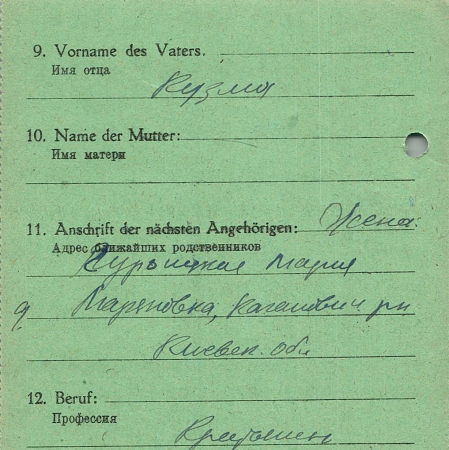 9. Vorname des Vaters.
Имя отца
Кузма
10. Name der Mutter:
Имя матери
11. Anschrift der nächsten Angehörigen: Жена.
Адрес ближайших родственников
Мария
д Марьяновка, Каганович. рн
Киевск. обл
12. Beruf:
Профессия